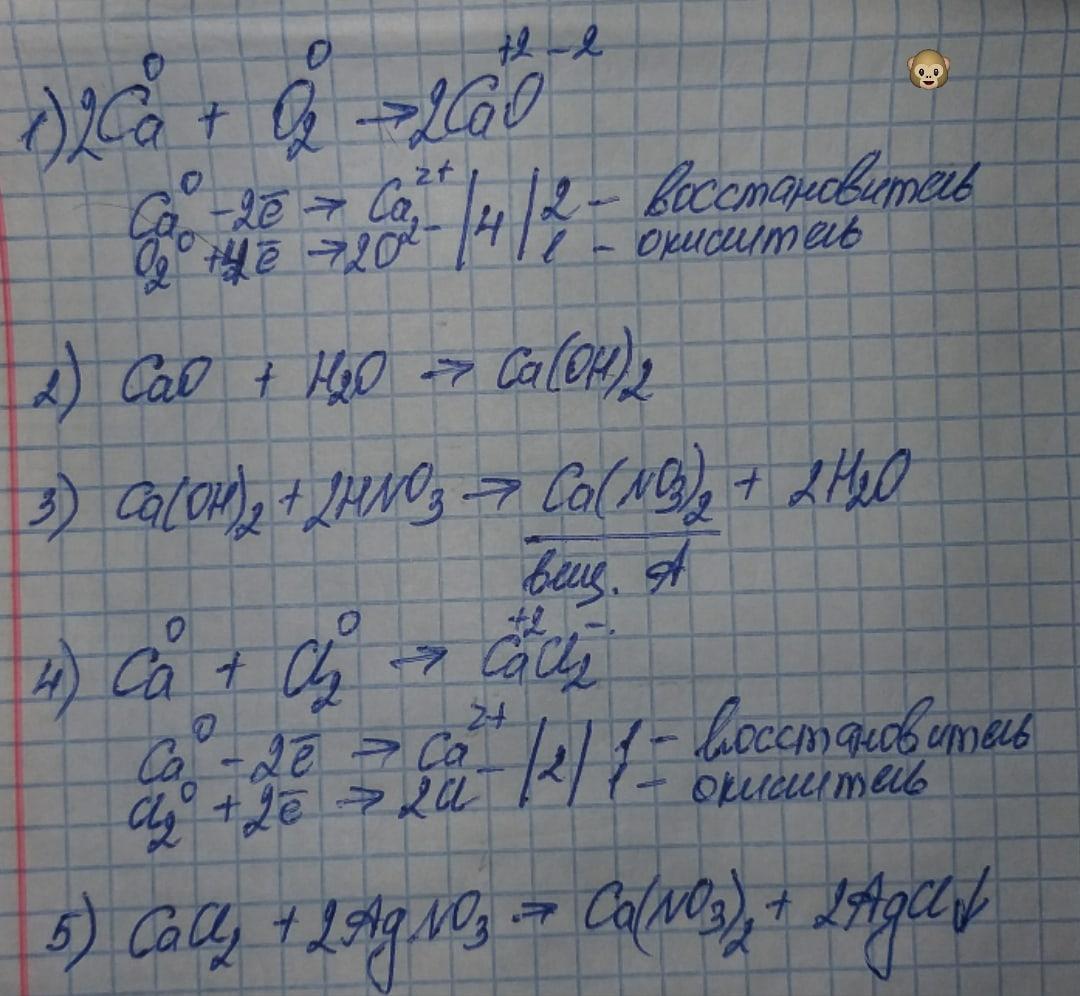 1) 2Ca⁰ + O₂⁰ → 2Ca⁺²O⁻²
Ca⁰ - 2ē → Ca²⁺ | 4 | 2 - восстановитель
O₂⁰ + 4ē → 2O²⁻ | 4 | 1 - окислитель
2) CaO + H₂O → Ca(OH)₂
3) Ca(OH)₂ + 2HNO₃ → Ca(NO₃)₂ + 2H₂O
вещ. А
4) Ca⁰ + Cl₂⁰ → Ca⁺²Cl₂⁻
Ca⁰ - 2ē → Ca²⁺ | 2 | 1 - восстановитель
Cl₂⁰ + 2ē → 2Cl⁻ | 2 | 1 - окислитель
5) CaCl₂ + 2AgNO₃ → Ca(NO₃)₂ + 2AgCl↓